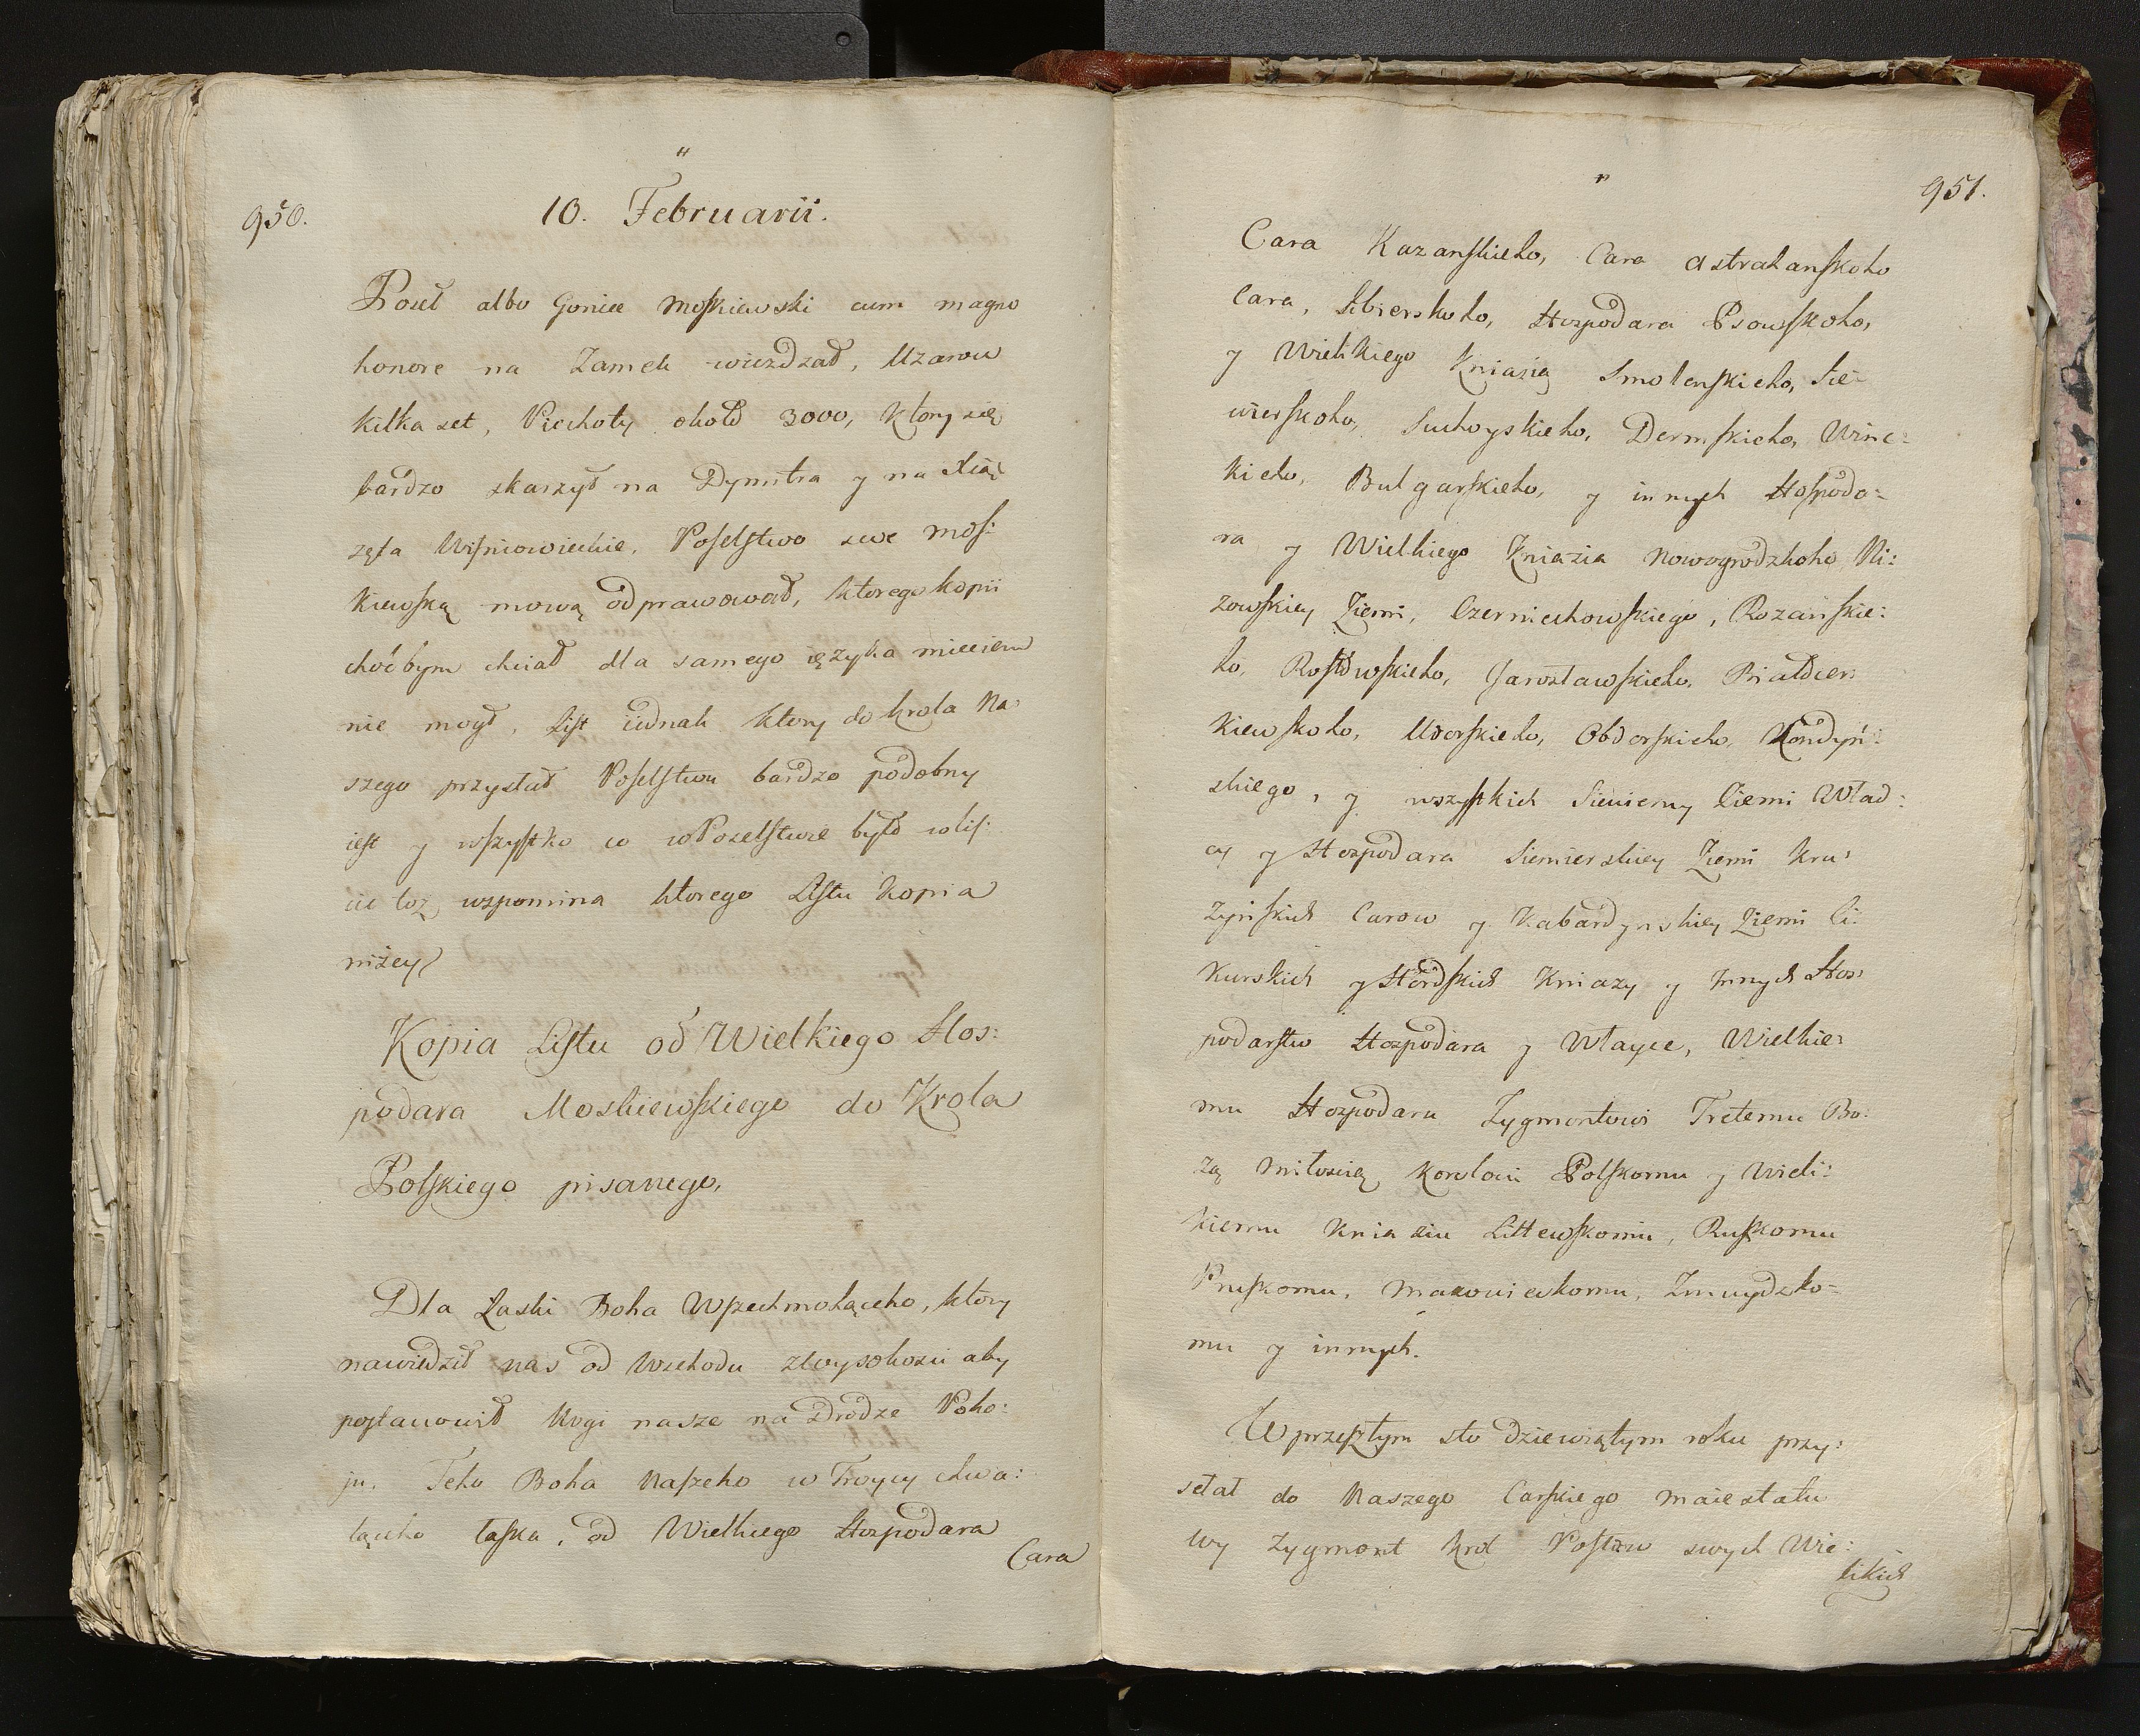 950.
10. Februarii.
Poseł albo Goniec Moskiewski cum magno
honore na Zamek wieżdzał, Uzarow
kilka set, Piechoty około 3000, ktory się
bardzo skarzył na Dymitra y na Xiąż
zęta Wiśniowieckie, Poselstwo swe Mos:
kiewską mową odprawował, ktorego kopii
choćbym chciał dla samego ięzyka mieciem
nie mogł, List iednak ktory do krola Na:
szego przysłał Poselstwu bardzo podobny
iest y wszystko co w Poselstwie było w lis:
cie toż wspomina ktorego Listu kopia
niżey
Kopia Listu od Wielkiego Hos:
podara Moskiewskiego do Krola
Polskiego pisanego,
Dla Łaski Boha Wszechmohąceho, ktory
nawiedził nas od Wschodu zwysokosci aby
postanowił Nogi nasze na Drodze Poko:
ju. Teho Boha Naszeho w Troycy chwa:
lącho łaska, od Wielkiego Hospodara
Cara
951.
Cara Kazanskieho, Cara Astrahanskoho
Cara, Sibierskoho, Hospodara Psowskoho,
y Wielikiego Kniazia Smolenskieho, Sie:
wierskoho, Suchoyskieho, Dermskieho, Winc:
kieho, Bulgarskieho, y innych Hospodo:
ra y Wielkiego Kniazia Nowogrodzkoho Ni:
zowskiey Ziemi, Czerniechowskiego, Rozanskie:
ho, Rostowskieho, Jarosławskieho, Białoier:
kiewskoho, Udorskieho, Obdorskieho, Kondyń:
skiego, y wszystkich Siewierny Ziemi Wład:
cy y Hospodara Siemierskiey Ziemi Kru:
zynskich Carow y Kabardynskiey Ziemi Ci:
kurskich y Hordskich Kniazy y Innych Hos:
podarstw Hospodara y Włayce, Wielkie:
mu Hospodaru Zygmontowi Tretemu Bo:
żą miłoscią Korolowi Polskomu y Wieli:
kiemu Kniaziu Littewskomu, Ruskomu
Pruskomu, Mazowieckomu, Zmuydzko:
mu y innych.
W przeszłym sto dziewiątym roku przy:
sełał do Naszego Carskiego Maiestatu
Wy Zygmont Krol Posłow swych Wie:
likich